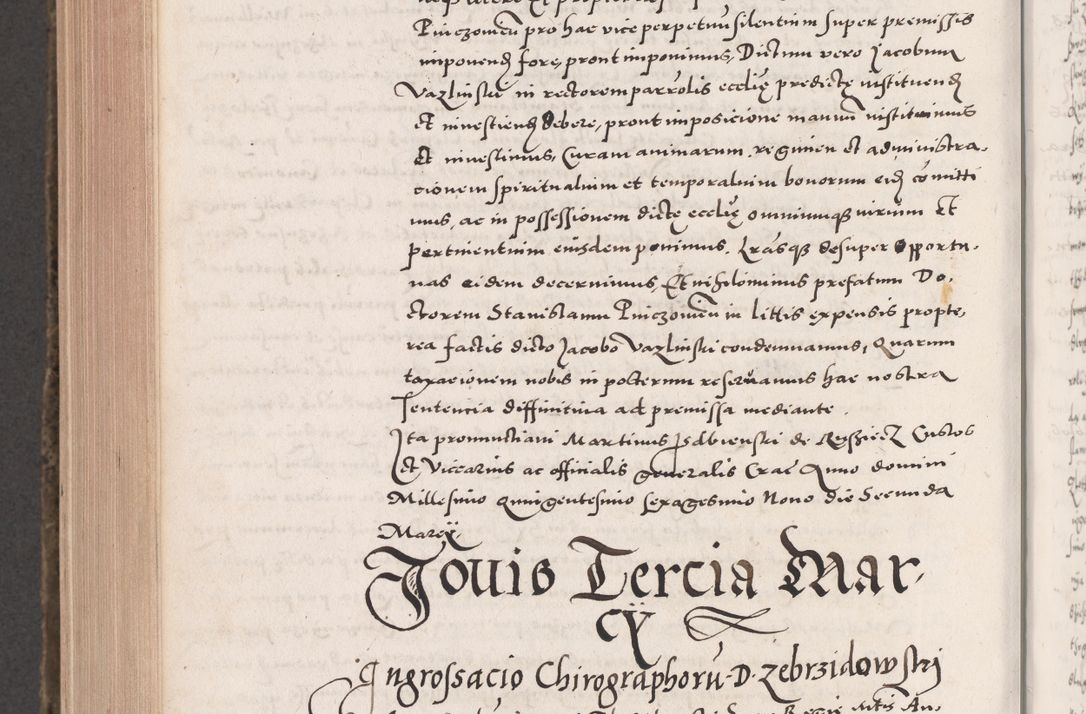 Pinczoviensem pro hac vice perpetuū silentium super premissis
imponendū fore, prout imponimus, Dictum vero Jacobum
Vazlinski in rectorem parrōlis ecclīę predictę instituendū
et investiendū debere, prout imposicione manuū instituimus
Et investimus, Curam animarum, regimen et administra-
cionem spiritualium et temporalium bonorum eidē comitti
mus, ac in possessionem dictę ecclīę omniumq₃ iurium Et
pertinentium eiusdem ponimus. Lrasq₃ desuper opportu-
nas eidem decernimus, Et nihilominus prefatum Do-
ctorem Stanislaum Pinczovieñ in littis expensis propte-
rea factis dicto Jacobo Vazlinski condemnamus, Quarum
taxacionem nobis in posterum reservamus hac nostra
Sentencia diffinitiva ad premissa mediante.
Ita pronunctiavi Martinus Izdbienski de Custos
Et Viccarius ac officialis generalis Crac̄ Anno domini
Millesimo quingentesimo sexagesimo Nono die Secunda
Marcÿ
Jovis Tercia Mar-
cÿ
Ingrossacio Chirographorū D. Zebrzidowskÿ